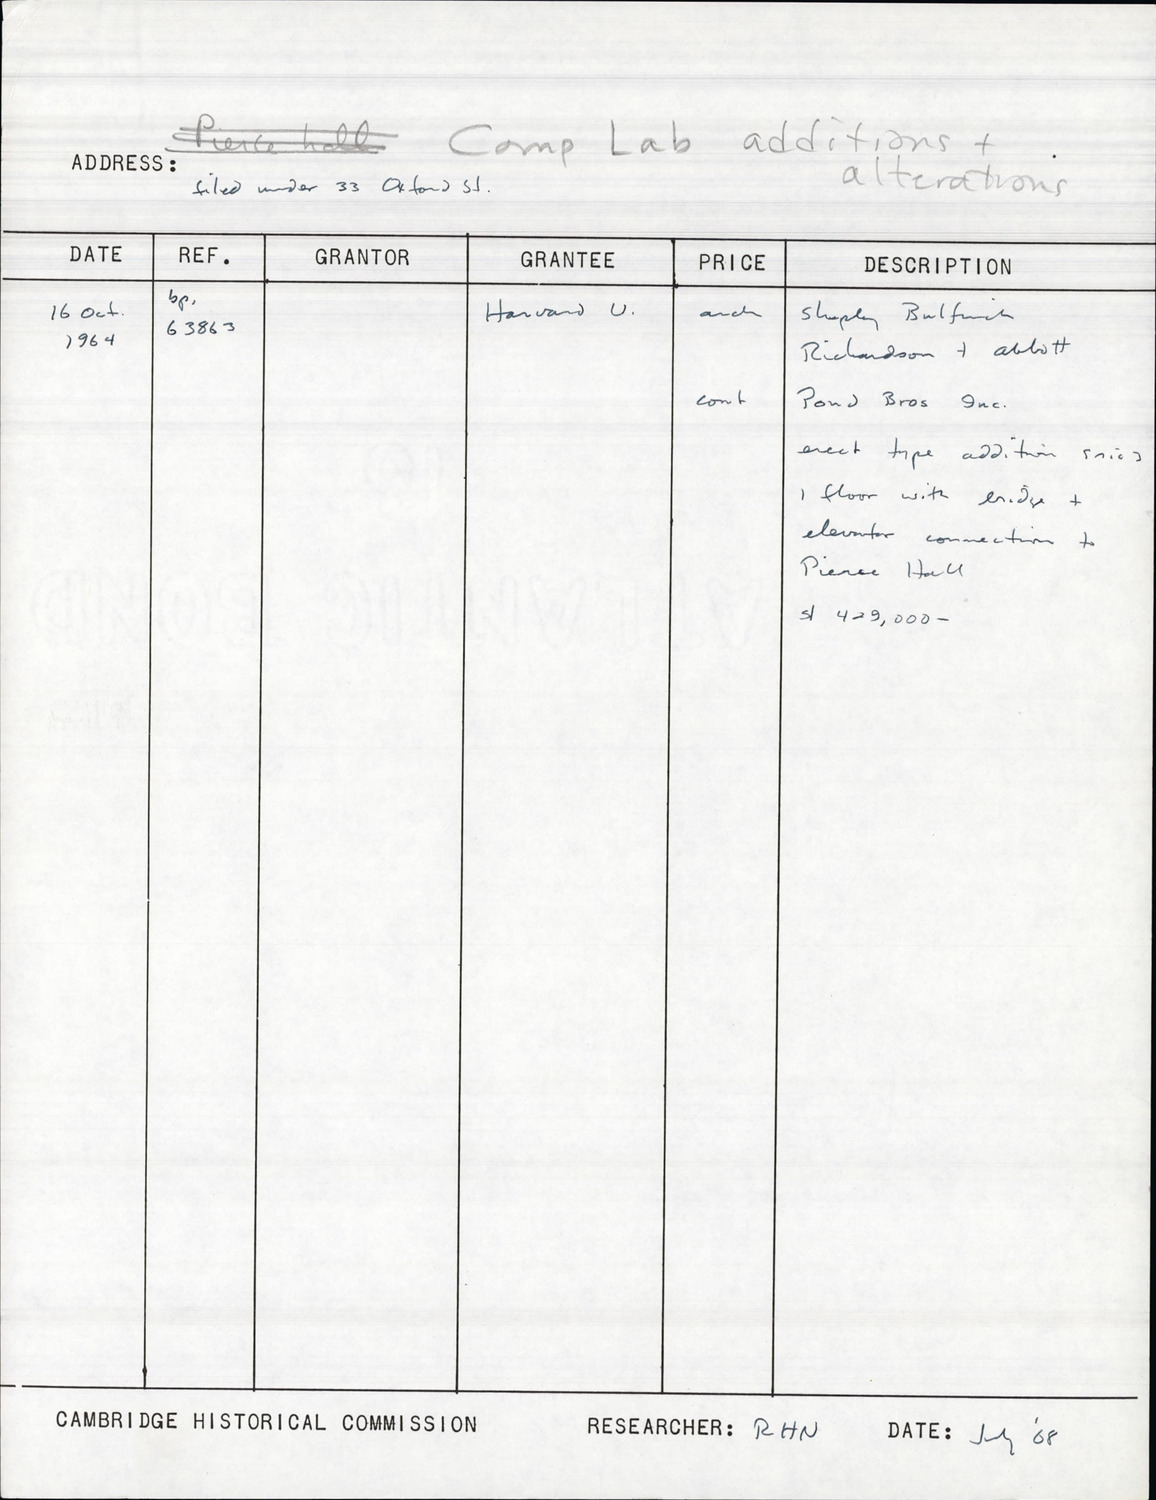 Pierce hall Comp Lab additions +
alterations
ADDRESS:
filed under 33 Oxford St.
DATE REF. GRANTOR GRANTEE PRICE DESCRIPTION
16 Oct. bp. Harvard U. arch Shepley Bulfinch
1964 63863 Richardson + abbott
cont Pond Bros Inc.
erect type addition
1 floor with bridge +
elevator connection to
Pierce Hall
429,000-
CAMBRIDGE HISTORICAL COMMISSION RESEARCHER: RHN DATE: July '68